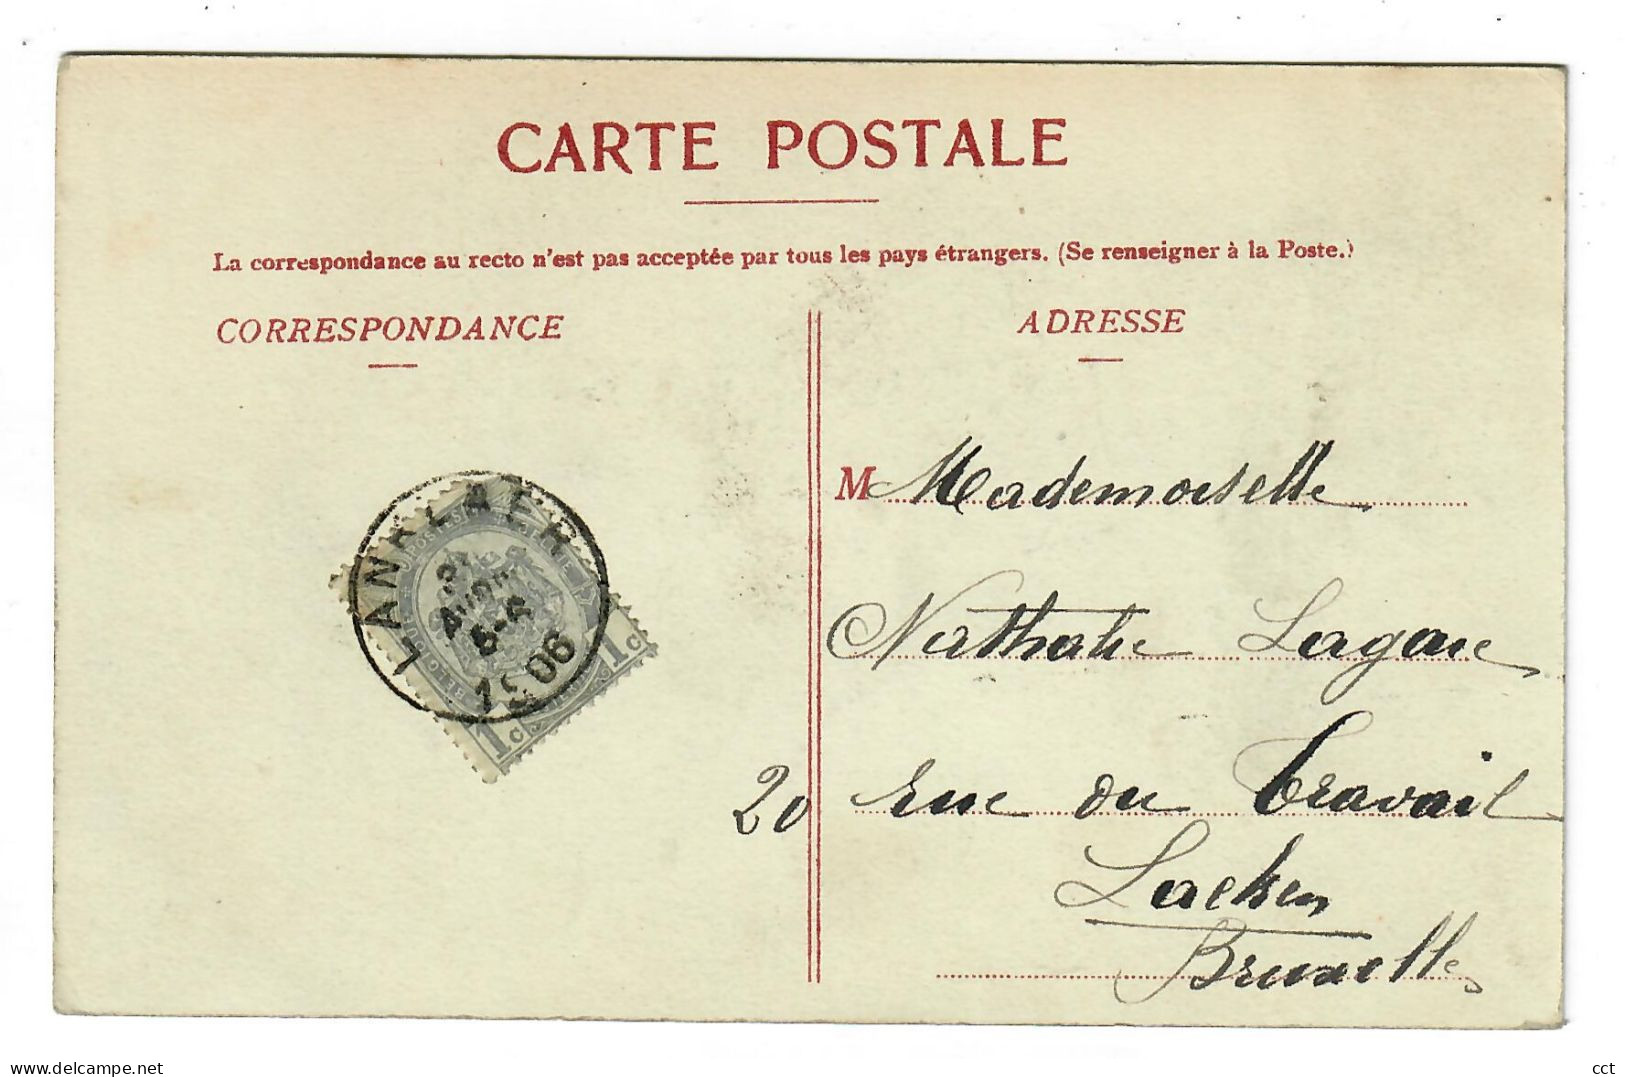 CARTE POSTALE
La correspondance au recto n'est pas acceptée par tous les pays étrangers. (Se renseigner à la Poste.)
CORRESPONDANCE
ADRESSE
LANKLAER
5-6
1906
1c 1c
M Mademoiselle
Nathalie Lagae
20 rue du Travail
Laeken
Bruxelles
delcampe.net
cct